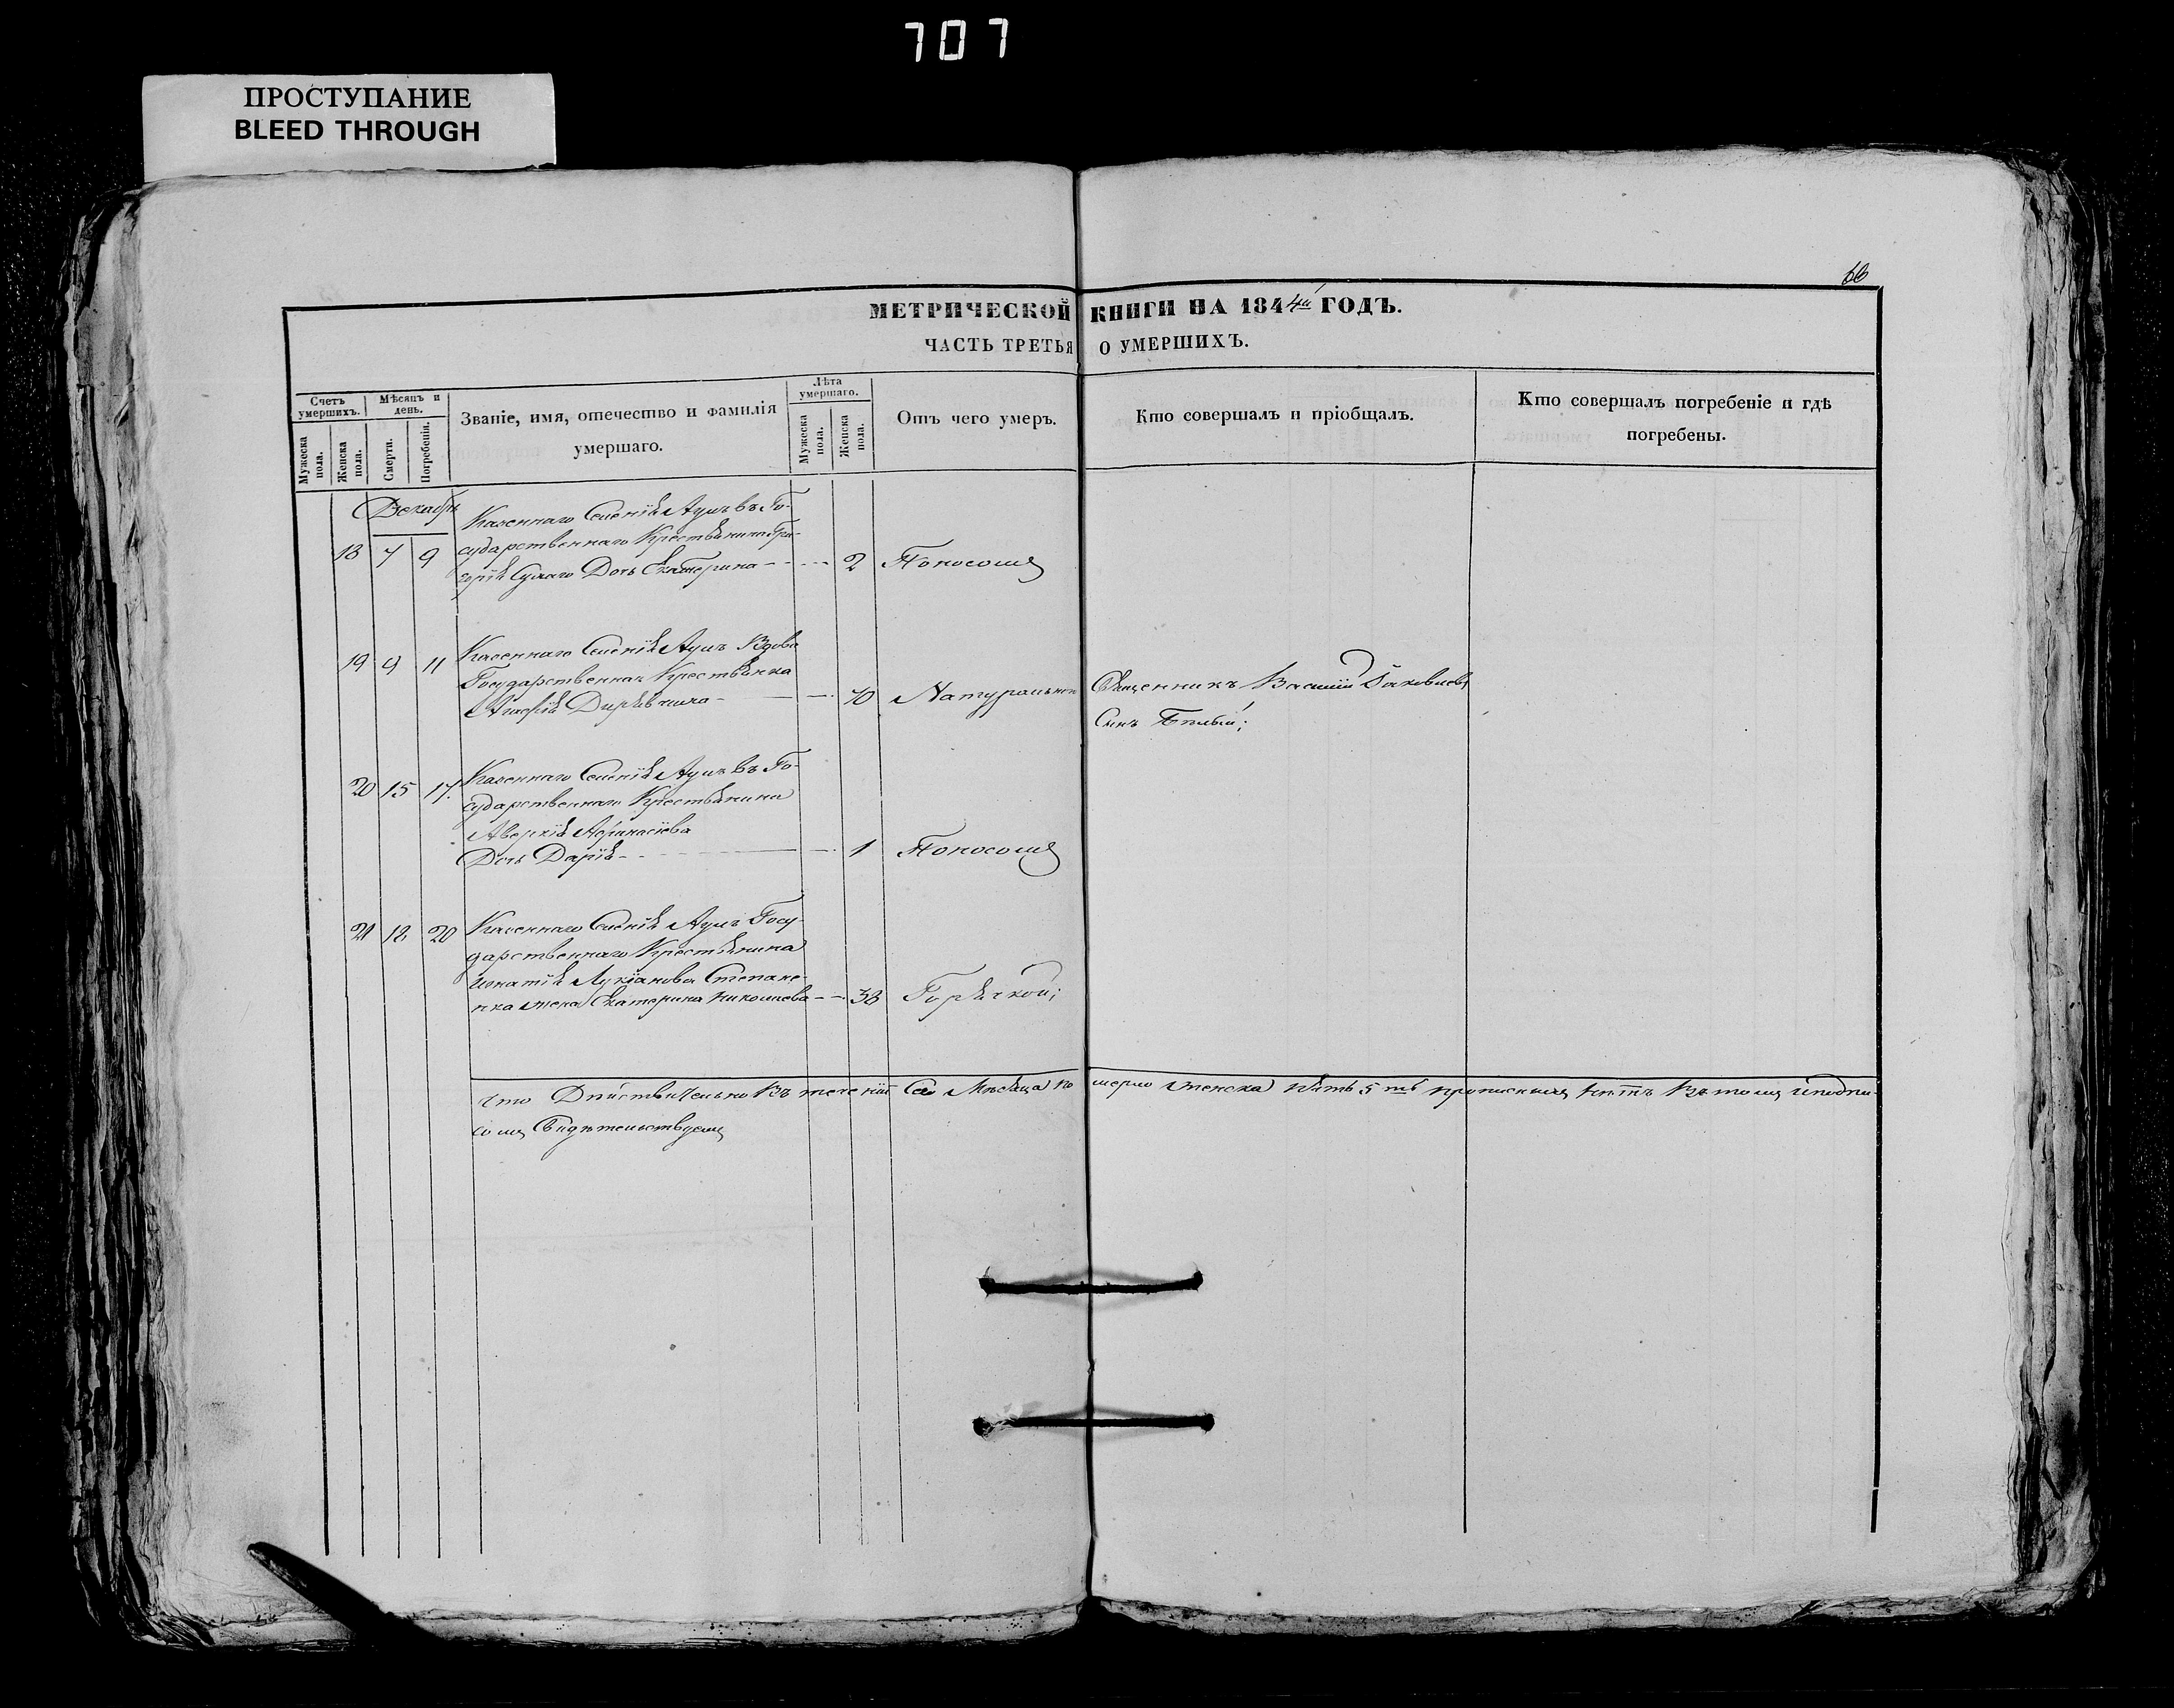 707
ПРОСТУПАНИЕ
BLEED THROUGH
66
МЕТРИЧЕСКОЙ КНИГИ НА 1844й ГОДЪ.
ЧАСТЬ ТРЕТЬЯ О УМЕРШИХЪ.
Счетъ умершихъ.
Мужеска пола.
Женска пола.
Мѣсяцъ и день.
Смерти.
Погребенія.
Званіе, имя, отечество и фамилія умершаго.
Лѣта умершаго.
Мужеска пола.
Женска пола.
Отъ чего умеръ.
Кто совершалъ и пріобщалъ.
Кто совершалъ погребеніе и гдѣ погребены.
Декабрь
18 7 9
Казеннаго Селенія въ Го-
сударственнаго Крестьянина Гри-
горія Дочь Екатерина 2 Поносомъ
19 9 11
Казеннаго Селенія Вдова
Государственная Крестьянка
70 Натурально
Священникъ Василій Яковлевъ
Сынъ Бѣлый;
20 15 17.
Казеннаго Селенія въ Го-
сударственнаго Крестьянина
Аверкія Афанасіева
Дочь Дарія 1 Поносомъ
21 18 20
Казеннаго Селенія Госу-
дарственнаго Крестьянина
Игнатія Лукіанова Степане-
нка жена Екатерина Николаева 38 Горячкой;
что Дѣйствительно въ теченіи Сего Мѣсяца померло женска пять 5ть въ томъ и подпи-
сомъ Свидѣтельствуемъ